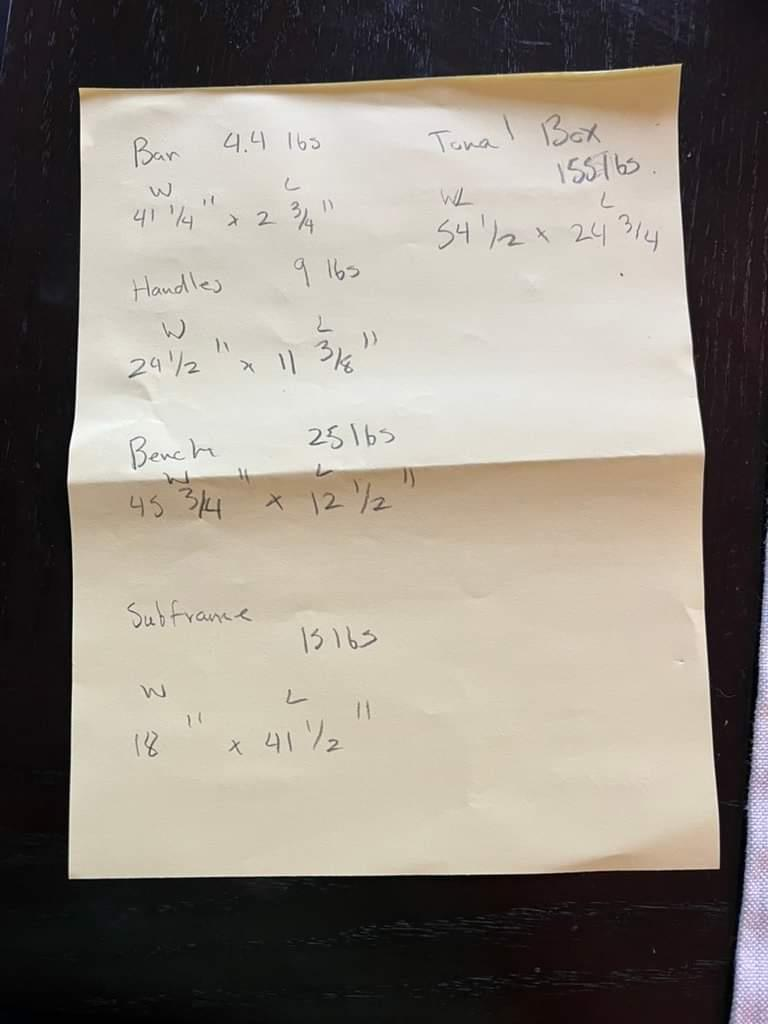 Bar 4.4 lbs
W L
41 1/4" x 2 3/4"
Handles 9 lbs
W L
24 1/2" x 11 3/8"
Bench 25 lbs
W L
45 3/4" x 12 1/2"
Subframe
15 lbs
W L
18" x 41 1/2"
Tonal Box
155 lbs.
WL L
54 1/2 x 24 3/4